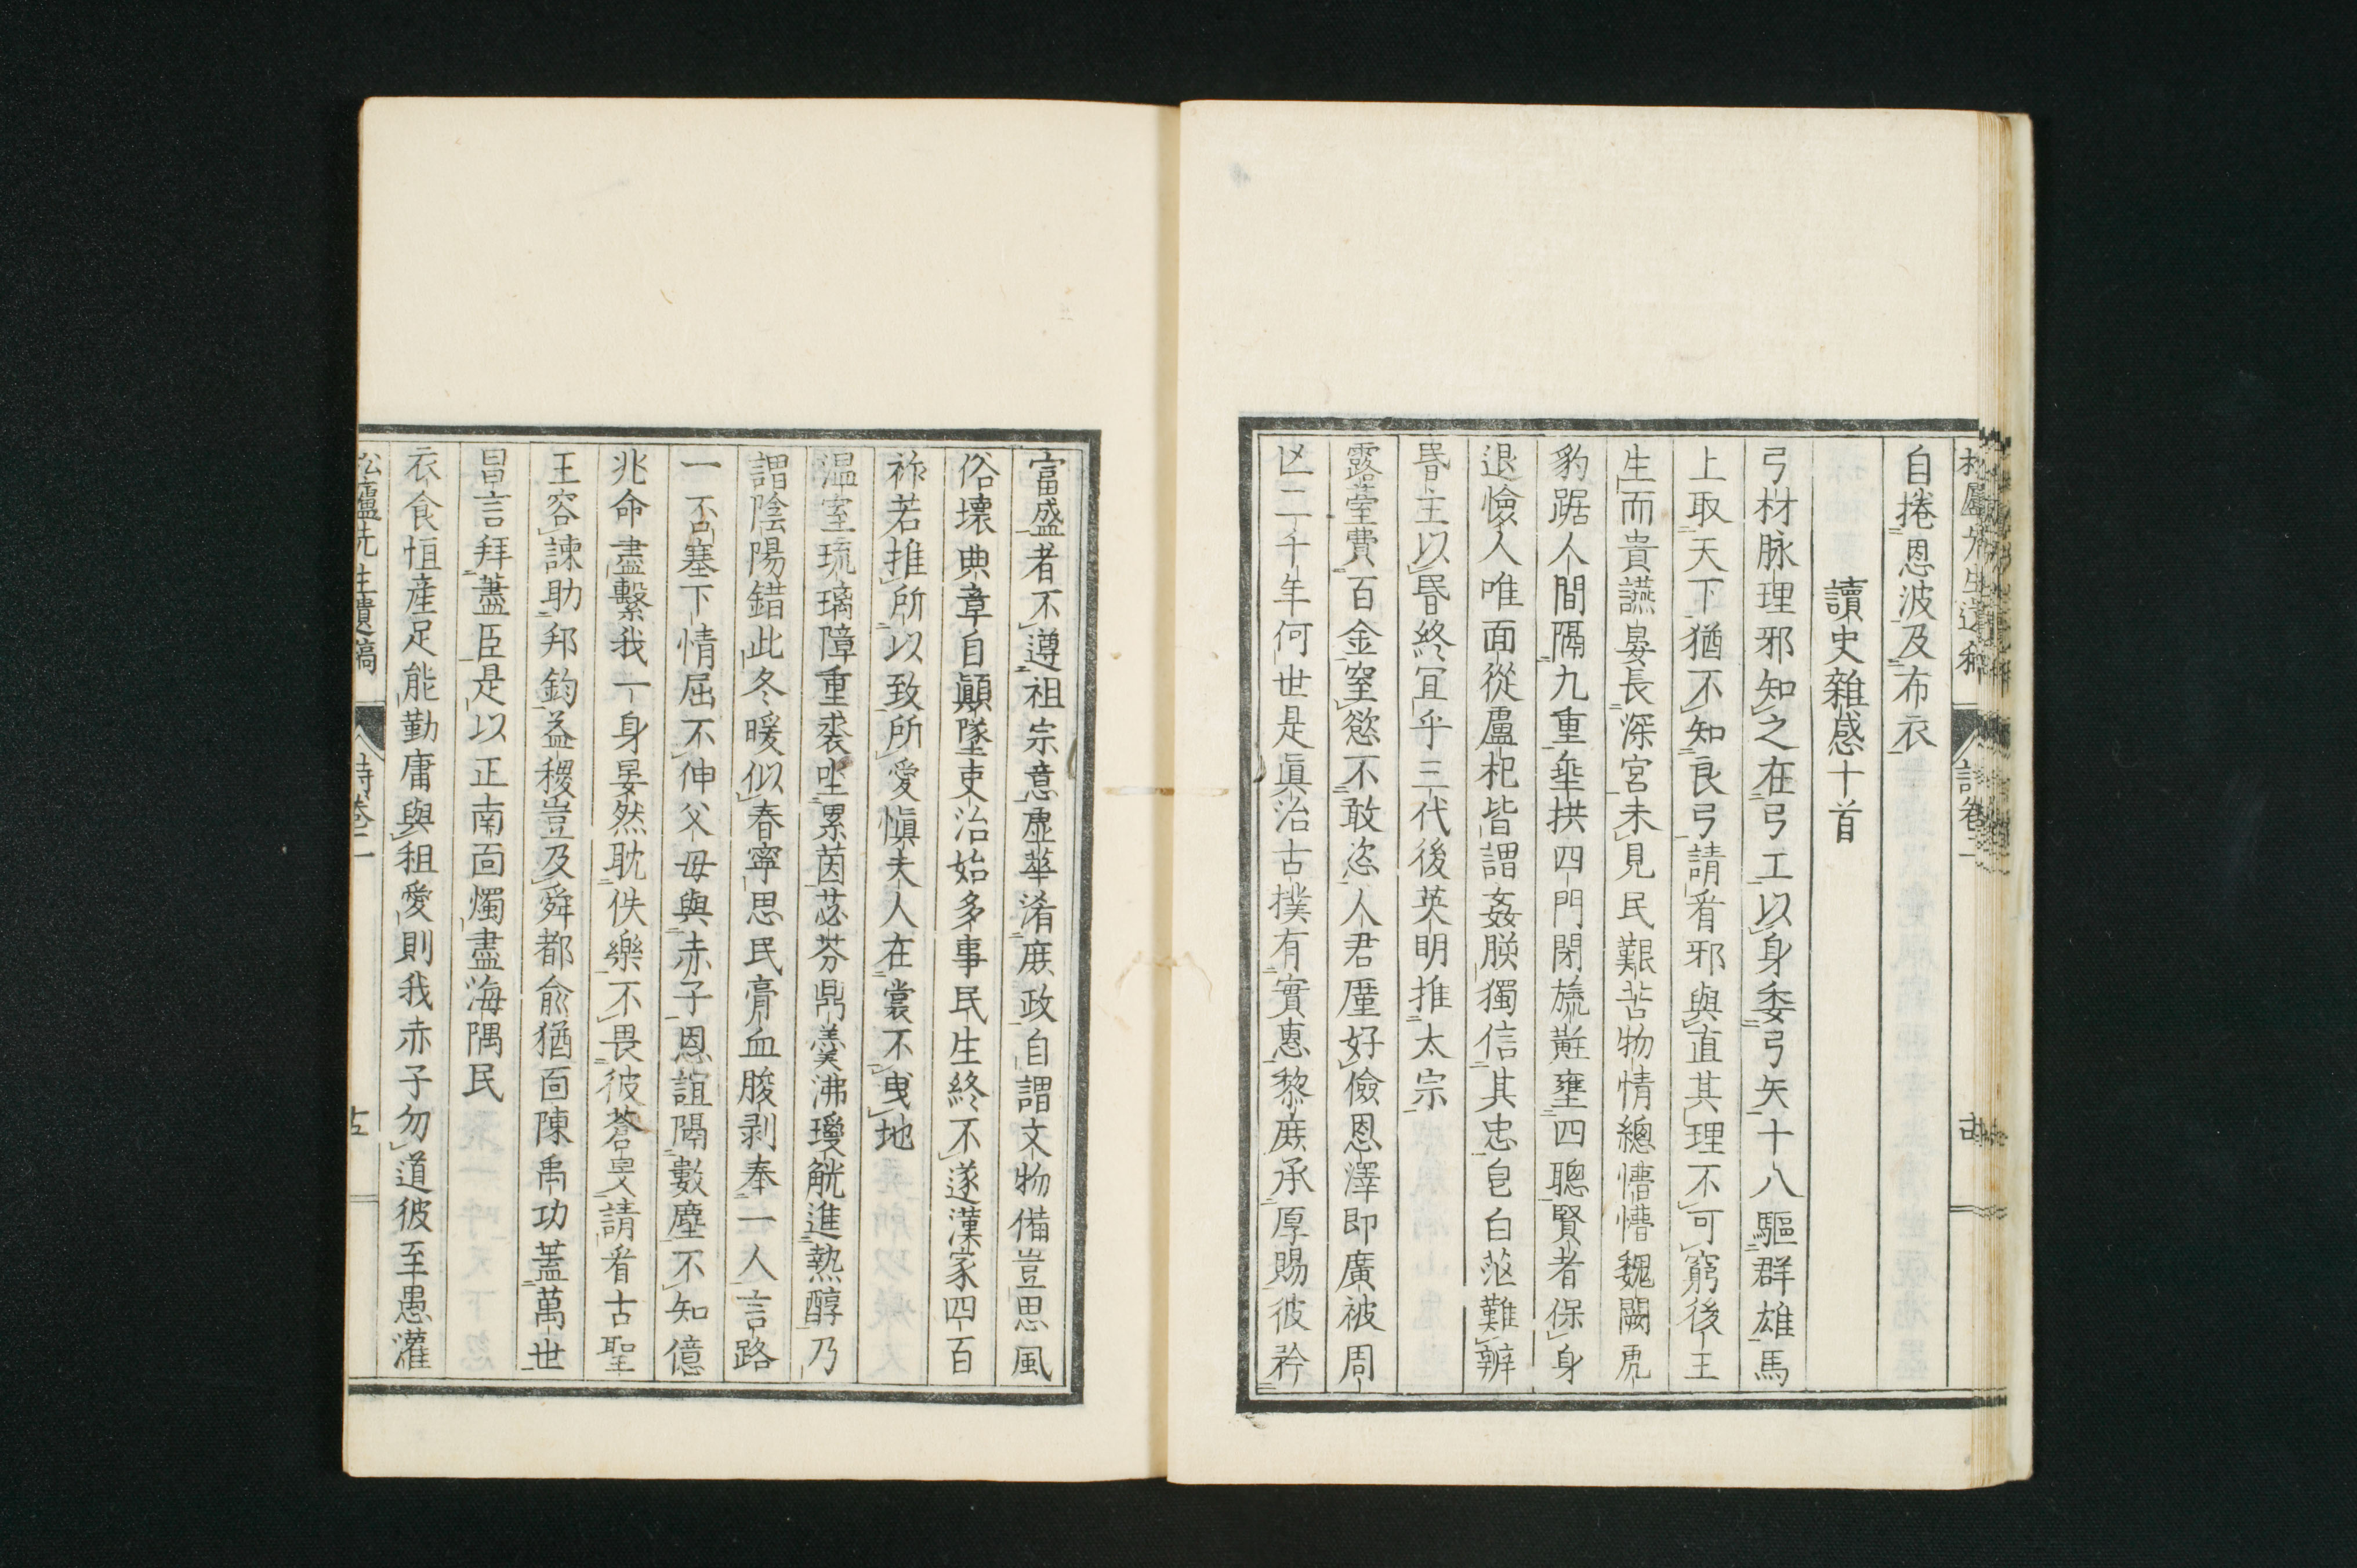 自捲恩波及布衣
讀史雜感十首
弓材脉理邪知之在弓工以身委弓矢十八驅群雄馬
上取天下猶不知良弓請看邪與直其理不可窮後王
生而貴讌晏長深宮未見民艱苦物情總懵懵魏闕虎
豹踞人間隔九重垂拱四門閉旒黈壅四聰賢者保身
退憸人唯面從盧杞皆謂姦朕獨信其忠皂白茫難辨
昬主以昬終冝乎三代後英明推太宗
露臺費百金窒慾不敢恣人君廑好儉恩澤即廣被周
亾二千年何世是眞治古撲有實惠黎庶承厚賜彼矜
富盛者不遵祖宗意虛華淆庶政自謂文物備豈思風
俗壞典章自顚墜吏治始多事民生終不遂漢家四百
祚若推所以致所愛愼夫人在裳不曳地
温室琉璃障重裘坐累茵苾芬鼎羹沸瓊觥進熱醇乃
謂陰陽錯此冬暖似春寧思民膏血朘剥奉一人言路
一否塞下情屈不伸父母與赤子恩誼隔數塵不知億
兆命盡繫我一身晏然耽佚樂不畏彼蒼旻請看古聖
王容諫助邦鈞益稷豈及舜都兪猶靣陳禹功蓋萬世
昌言拜藎臣是以正南靣燭盡海隅民
衣食恒產足能勤庸與租愛則我赤子勿道彼至愚灌
松廬先生遺稿
詩卷二